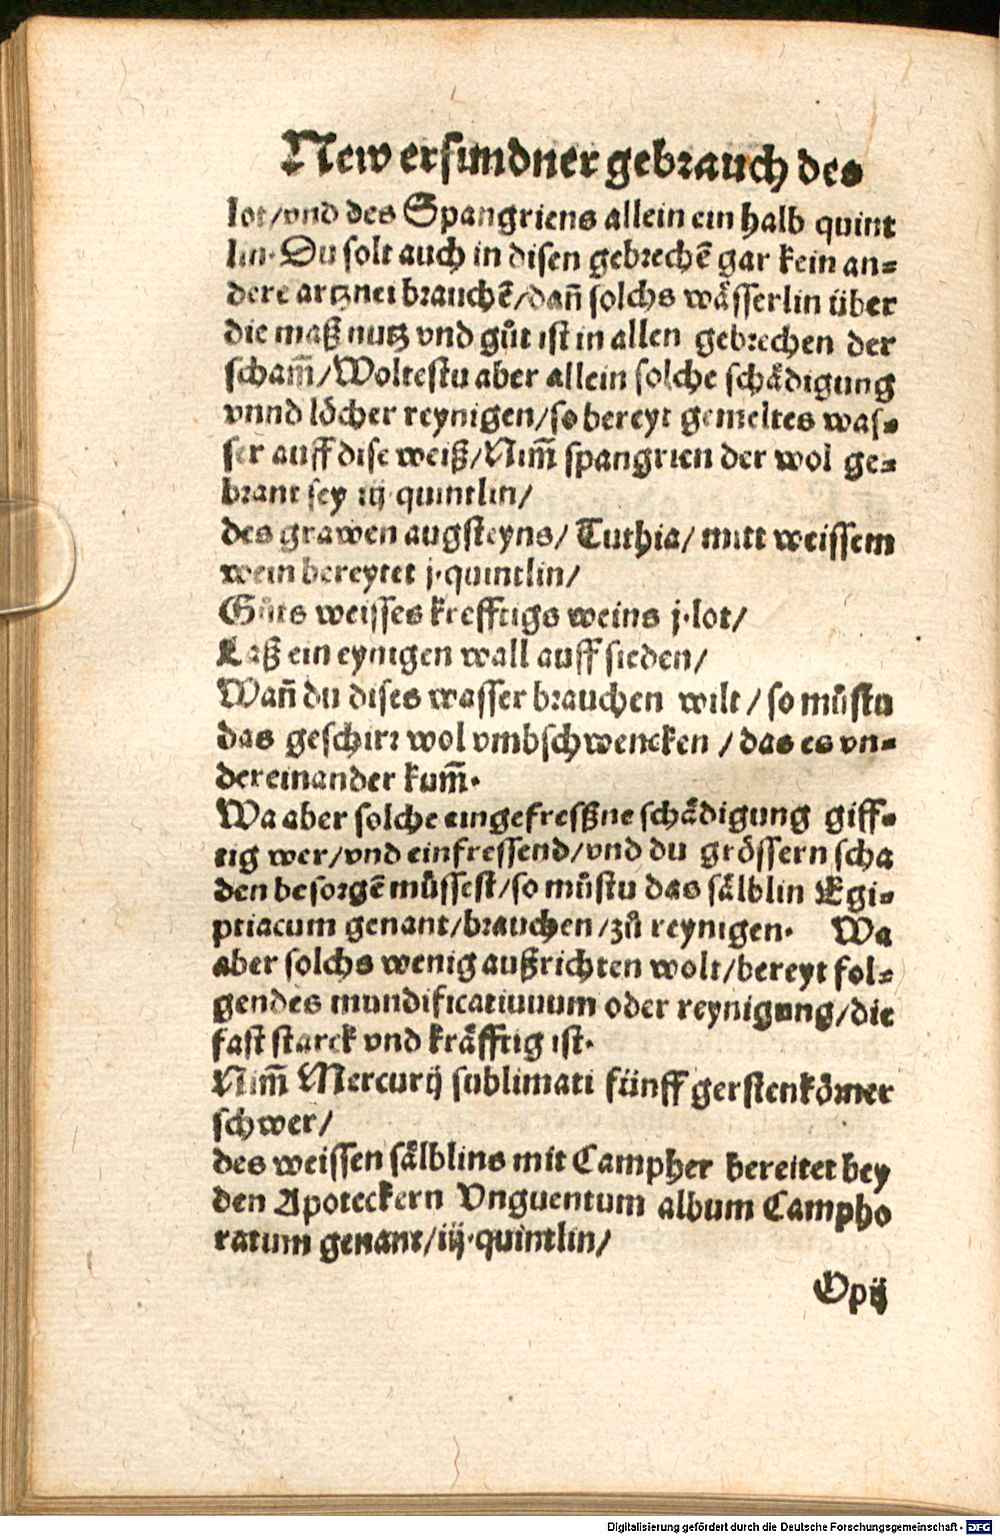 New erfundner gebrauch des
lot/vnd des Spangriens allein ein halb quint
lin. Du solt auch in disen gebrechẽ gar kein an=
dere artznei brauchẽ/dañ solchs wässerlin über
die maß nutz vnd gůt ist in allen gebrechen der
scham̃/Woltestu aber allein solche schädigung
vnnd löcher reynigen/so bereyt gemeltes was=
ser auff dise weiß/Nim̃ spangrien der wol ge=
brant sey iij. quintlin/
des grawen augsteyns/ Tuthia/ mitt weissem
wein bereytet j. quintlin/
Gůts weisses krefftigs weins j. lot/
Laß ein eynigen wall auff sieden/
Wañ du dises wasser brauchen wilt/ so můstu
das geschirr wol vmbschwencken/ das es vn=
dereinander kum̃.
Wa aber solche eingefreßne schädigung giff=
tig wer/vnd einfressend/vnd du grössern scha
den besorgẽ müssest/so můstu das sälblin Egi=
ptiacum genant/brauchen/zů reynigen. Wa
aber solchs wenig außrichten wolt/bereyt fol=
gendes mundificatiuuum oder reynigung/die
fast starck vnd kräfftig ist.
Nim̃ Mercurij sublimati fünff gerstenkörner
schwer/
des weissen sälblins mit Campher bereitet bey
den Apoteckern Vnguentum album Campho
ratum genant/iij. quintlin/
Opij
Digitalisierung gefördert durch die Deutsche Forschungsgemeinschaft - DFG